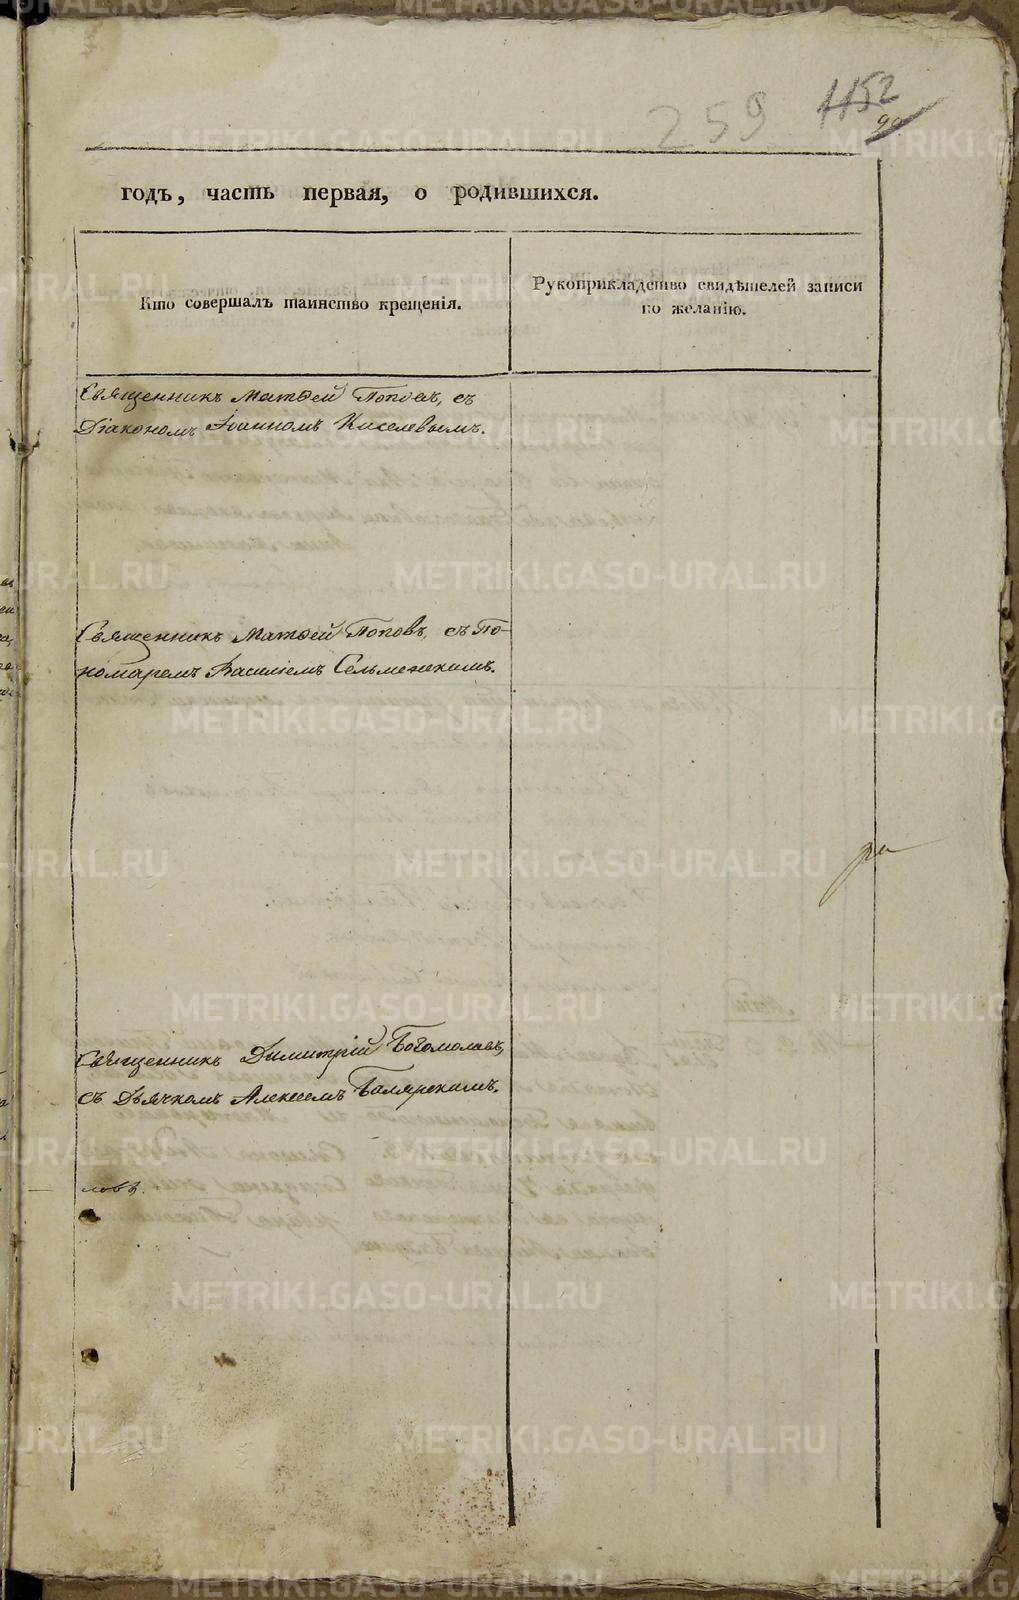 259
1152
90
годъ, часть первая, о родившихся.
Кто совершалъ таинство крещенія.
Рукоприкладство свидѣтелей записи
по желанію.
Священникъ Матѳей Поповъ, съ
Діакономъ Іоанномъ Киселевымъ.
Священникъ Матѳей Поповъ, съ По-
номаремъ Василіемъ Сельменскимъ.
Священникъ Димитрій Богомоловъ,
съ Дьячкомъ Алексѣемъ
ловъ.
METRIKI.GASO-URAL.RU